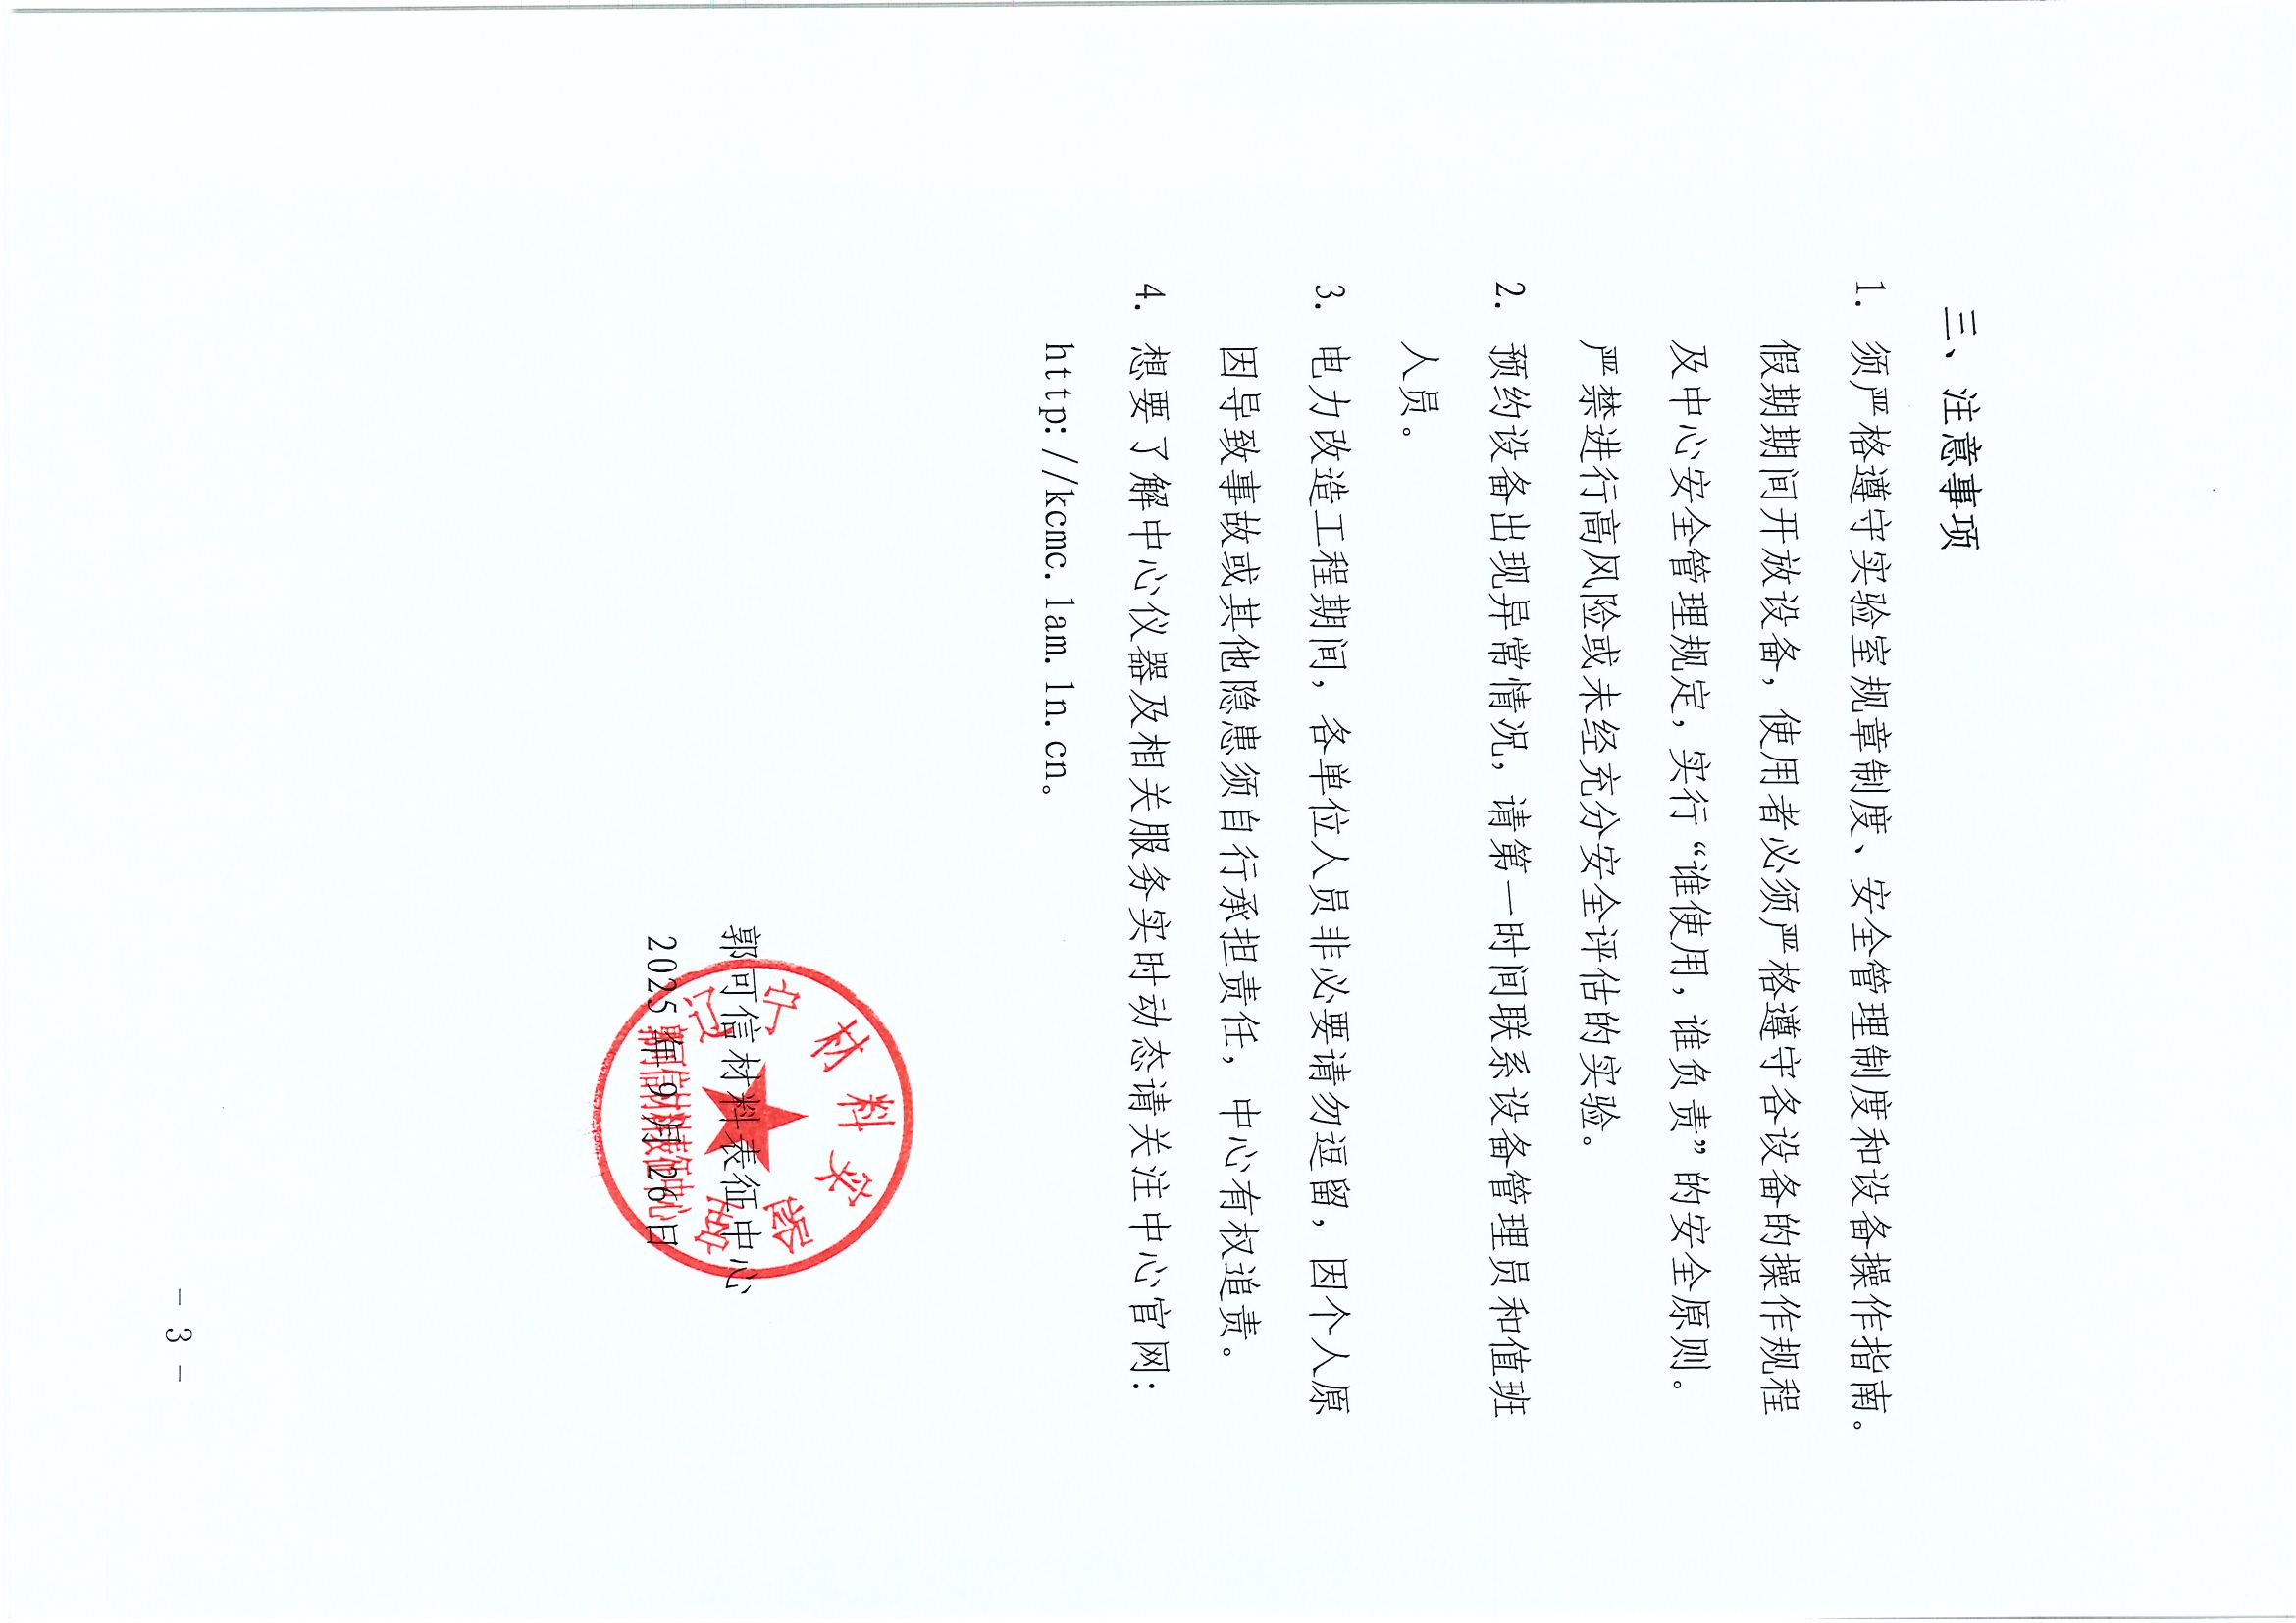 三、注意事项
1. 须严格遵守实验室规章制度、安全管理制度和设备操作指南。
假期期间开放设备，使用者必须严格遵守各设备的操作规程
及中心安全管理规定，实行“谁使用，谁负责”的安全原则。
严禁进行高风险或未经充分安全评估的实验。
2. 预约设备出现异常情况，请第一时间联系设备管理员和值班
人员。
3. 电力改造工程期间，各单位人员非必要请勿逗留，因个人原
因导致事故或其他隐患须自行承担责任，中心有权追责。
4. 想要了解中心仪器及相关服务实时动态请关注中心官网：
http://kcmc.lam.ln.cn。
郭可信材料表征中心
2025年9月26日
辽宁材料实验室
郭可信材料表征中心
- 3 -